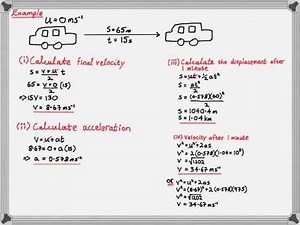 Example
u=0ms⁻¹
s=65m
t=15s
(i) Calculate final velocity
s = (v+u)/2 t
65 = (v+0)/2 (15)
⇒15V=130
V = 8.67 ms⁻¹
(ii) Calculate acceleration
V=u+at
8.67=0+a(15)
⇒ a = 0.578 ms⁻²
(iii) Calculate the displacement after
1 minute
s = ut+½at²
s = at²/2
s = (0.578)(60)²/2
s = 1040.4m
s = 1.04km
(iv) Velocity after 1 minute
V² = u²+2as
V² = 2(0.578)(1.04×10³)
V = √1202
V = 34.67 ms⁻¹
or V²=u²+2as
V²=(8.67)²+2(0.578)(975)
V = √1202
V = 34.67 ms⁻¹